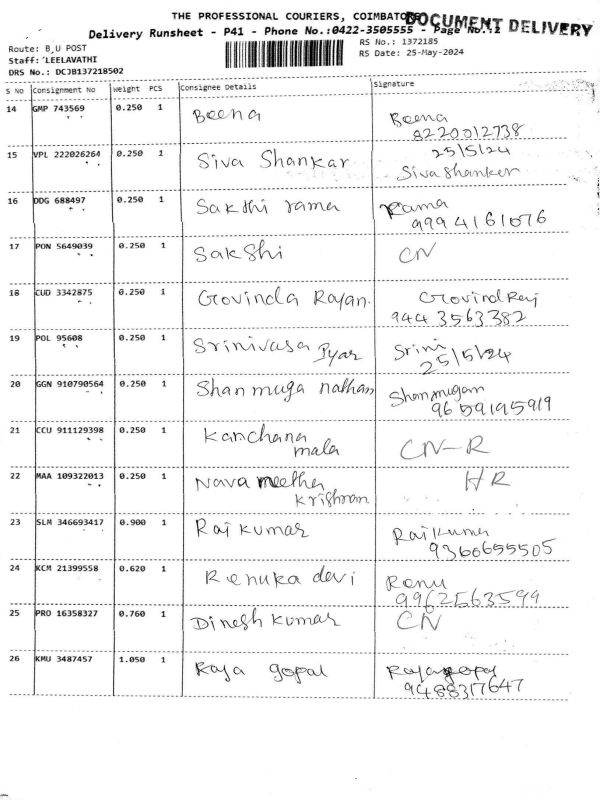 THE PROFESSIONAL COURIERS, COIMBATORE
DOCUMENT DELIVERY
Delivery Runsheet - P41 - Phone No.:0422-3505555 - Page No.:2
Route: B,U POST
RS No.: 1372185
Staff: LEELAVATHI
RS Date: 25-May-2024
DRS No.: DCJB137218502
S NO Consignment No Weight PCS Consignee Details Signature
14 GMP 743569 0.250 1 Beena Beena
8220012738
15 VPL 222026264 0.250 1 Siva Shankar 25/5/24
Sivashanker
16 DDG 688497 0.250 1 Sakshi rama Rama
9994161076
17 PON 5649039 0.250 1 Sakshi CN
18 CUD 3342875 0.250 1 Govinda Rajan. Govind Raj
9443563382
19 POL 95608 0.250 1 Srinivasa Iyar Srini
25/5/24
20 GGN 910790564 0.250 1 Shanmuga nathan Shanmugam
9659195919
21 CCU 911129398 0.250 1 Kanchana CN-R
mala
22 MAA 109322013 0.250 1 Nava neetha HR
Krishnan
23 SLM 346693417 0.900 1 Raj kumar Raj Kumar
9360655505
24 KCM 21399558 0.620 1 Renuka devi Renu
9962563599
25 PRO 16358327 0.760 1 Dinesh kumar CN
26 KMU 3487457 1.050 1 Raja gopal Rajagopal
9488317647